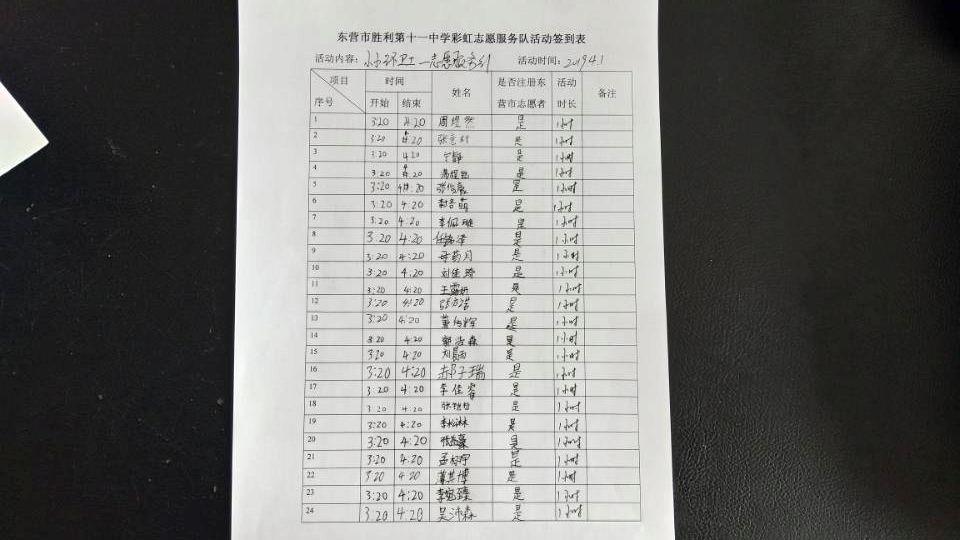 东营市胜利第十一中学彩虹志愿服务队活动签到表
活动内容: 志愿服务 活动时间: 2019.4.1
项目 时间 姓名 是否注册东营市志愿者 活动时长 备注
序号 开始 结束
1 3:20 4:20 周煜然 是 1小时
2 3:20 4:20 是 1小时
3 3:20 4:20 宁静 是 1小时
4 3:20 4:20 是 1小时
5 3:20 4:20 是 1小时
6 3:20 4:20 是 1小时
7 3:20 4:20 李佩璇 是 1小时
8 3:20 4:20 是 1小时
9 3:20 4:20 是 1小时
10 3:20 4:20 刘佳琦 是 1小时
11 3:20 4:20 王露妍 是 1小时
12 3:20 4:20 是 1小时
13 3:20 4:20 是 1小时
14 3:20 4:20 是 1小时
15 3:20 4:20 是 1小时
16 3:20 4:20 郝子瑞 是 1小时
17 3:20 4:20 李佳睿 是 1小时
18 3:20 4:20 是 1小时
19 3:20 4:20 李松林 是 1小时
20 3:20 4:20 是 1小时
21 3:20 4:20 是 1小时
22 3:20 4:20 是 1小时
23 3:20 4:20 是 1小时
24 3:20 4:20 吴沛森 是 1小时